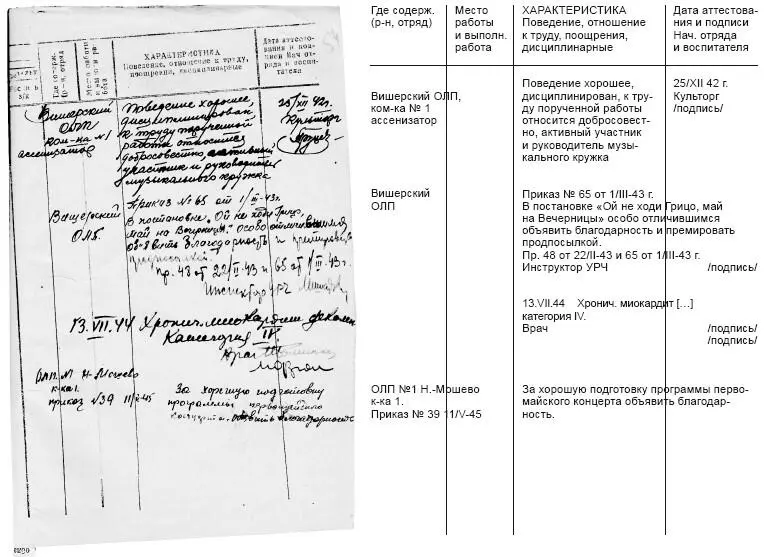 Где содерж. (р-н, отряд)
Место работы и выполн. работа
ХАРАКТЕРИСТИКА
Поведение, отношение к труду, поощрения, дисциплинарные
Дата аттестования и подписи Нач. отряда и воспитателя
Вишерский
ОЛП
ком-ка №1
ассенизатор
Поведение хорошее,
дисциплинирован
к труду порученной
работы относится
добросовестно, активный
участник и руководитель
музыкального кружка
25/XII 42г.
Культорг
Вишерский
ОЛП.
Приказ № 65 от 1/III-43г.
В постановке „Ой не ходи Грицо,
май на Вечерницы" особо отличившимся
об-явить благодарность и премировать
продпосылкой.
Пр. 48 от 22/II-43 и 65 от 1/III-43г.
Инспектор УРЧ
13.VII.44 Хронич. миокардит
Категория IV.
Врач
ОЛП №1 Н-Мошево
к-ка 1.
приказ №39 11/V-45
За хорошую подготовку
программы первомайского
концерта объявить благодарность
Где содерж.
(р-н, отряд)
Место
работы
и выполн.
работа
ХАРАКТЕРИСТИКА
Поведение, отношение
к труду, поощрения,
дисциплинарные
Дата аттестова-
ния и подписи
Нач. отряда
и воспитателя
Вишерский ОЛП,
ком-ка № 1
ассенизатор
Поведение хорошее,
дисциплинирован, к тру-
ду порученной работы
относится добросовест-
но, активный участник
и руководитель музы-
кального кружка
25/XII 42 г.
Культорг
/подпись/
Вишерский
ОЛП
Приказ № 65 от 1/III-43 г.
В постановке «Ой не ходи Грицо, май
на Вечерницы» особо отличившимся
объявить благодарность и премировать
продпосылкой.
Пр. 48 от 22/II-43 и 65 от 1/III-43 г.
Инструктор УРЧ /подпись/
13.VII.44 Хронич. миокардит […]
категория IV.
Врач /подпись/
/подпись/
ОЛП №1 Н.-Мошево
к-ка 1.
Приказ № 39 11/V-45
За хорошую подготовку программы перво-
майского концерта объявить благодар-
ность.